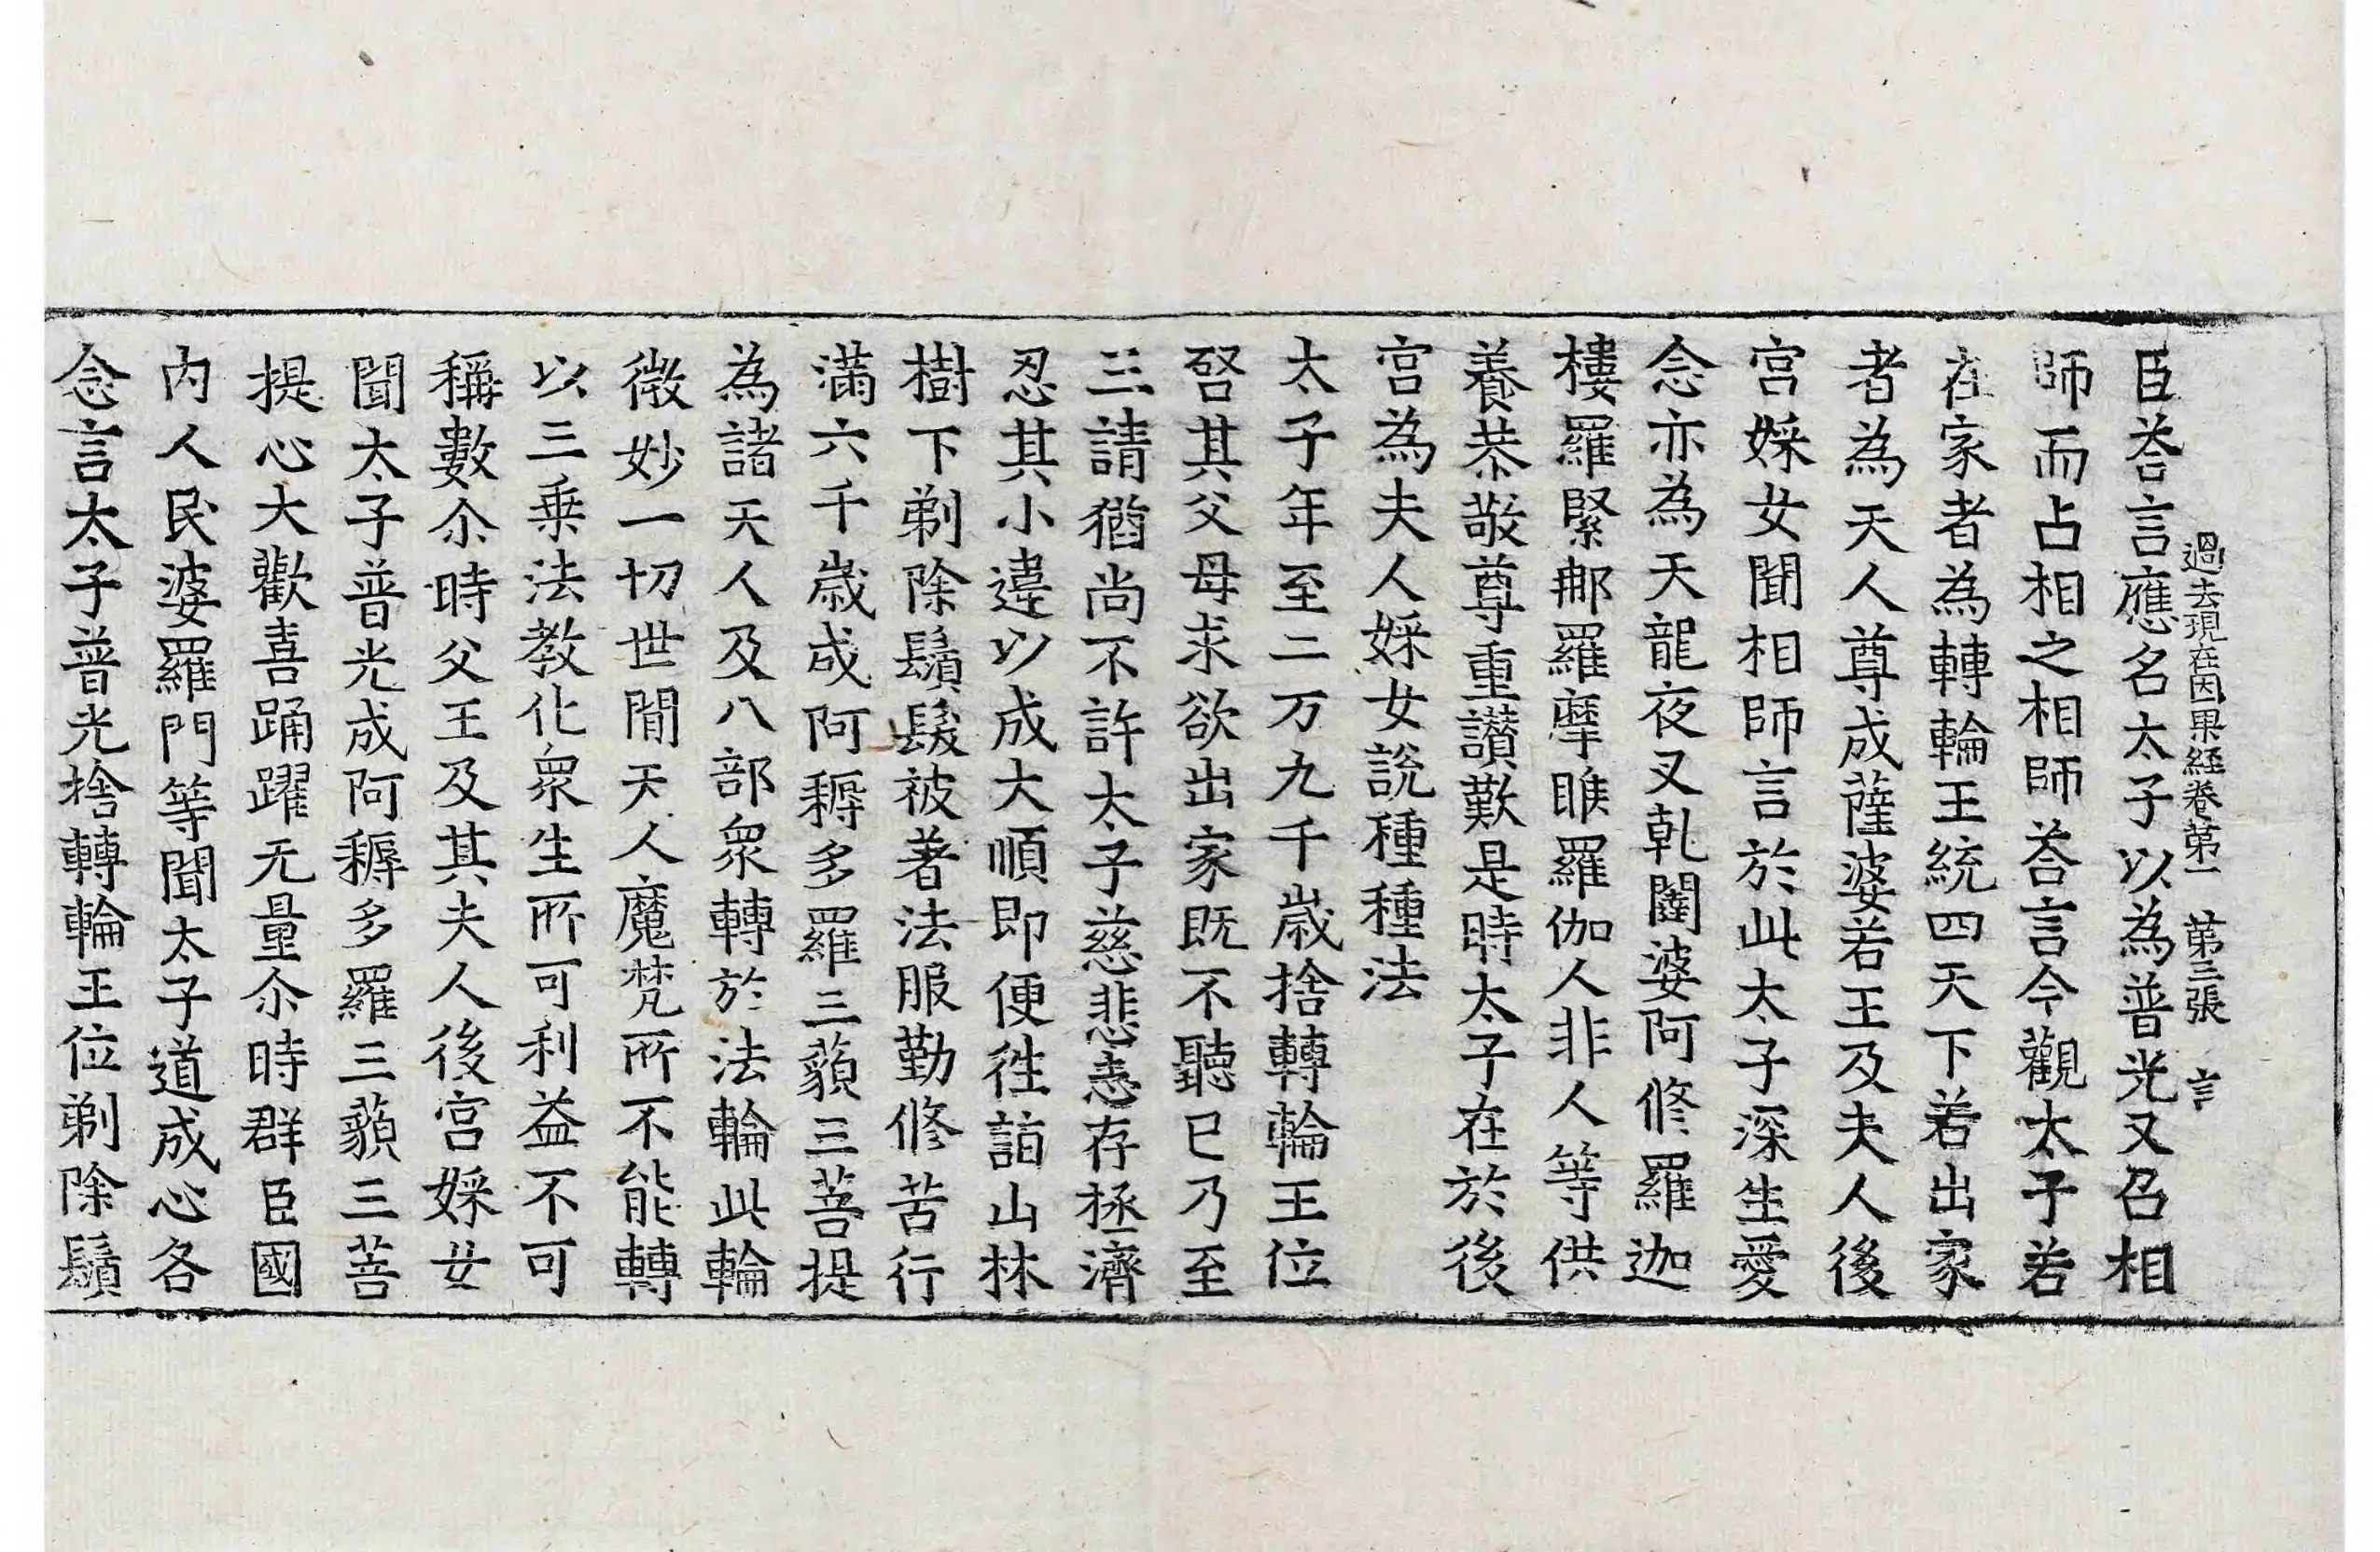 過去現在因果経卷第一 第三張 言
臣荅言應名太子以為普光又召相
師而占相之相師荅言今觀太子若
在家者為轉輪王統四天下若出家
者為天人尊成薩婆若王及夫人後
宫婇女聞相師言於此太子深生愛
念亦為天龍夜叉乹闥婆阿修羅迦
樓羅緊那羅摩睺羅伽人非人等供
養恭敬尊重讃歎是時太子在於後
宫為夫人婇女說種種法
太子年至二万九千歲捨轉輪王位
啓其父母求欲出家既不聽已乃至
三請猶尚不許太子慈悲志存拯濟
忍其小違以成大順即便徃詣山林
樹下剃除鬚髮被著法服勤修苦行
滿六千歲成阿耨多羅三藐三菩提
為諸天人及八部衆轉於法輪此輪
微妙一切世間天人魔梵所不能轉
以三乗法教化衆生所可利益不可
稱數尒時父王及其夫人後宫婇女
聞太子普光成阿耨多羅三藐三菩
提心大歡喜踊躍无量尒時群臣國
内人民婆羅門等聞太子道成心各
念言太子普光捨轉輪王位剃除鬚